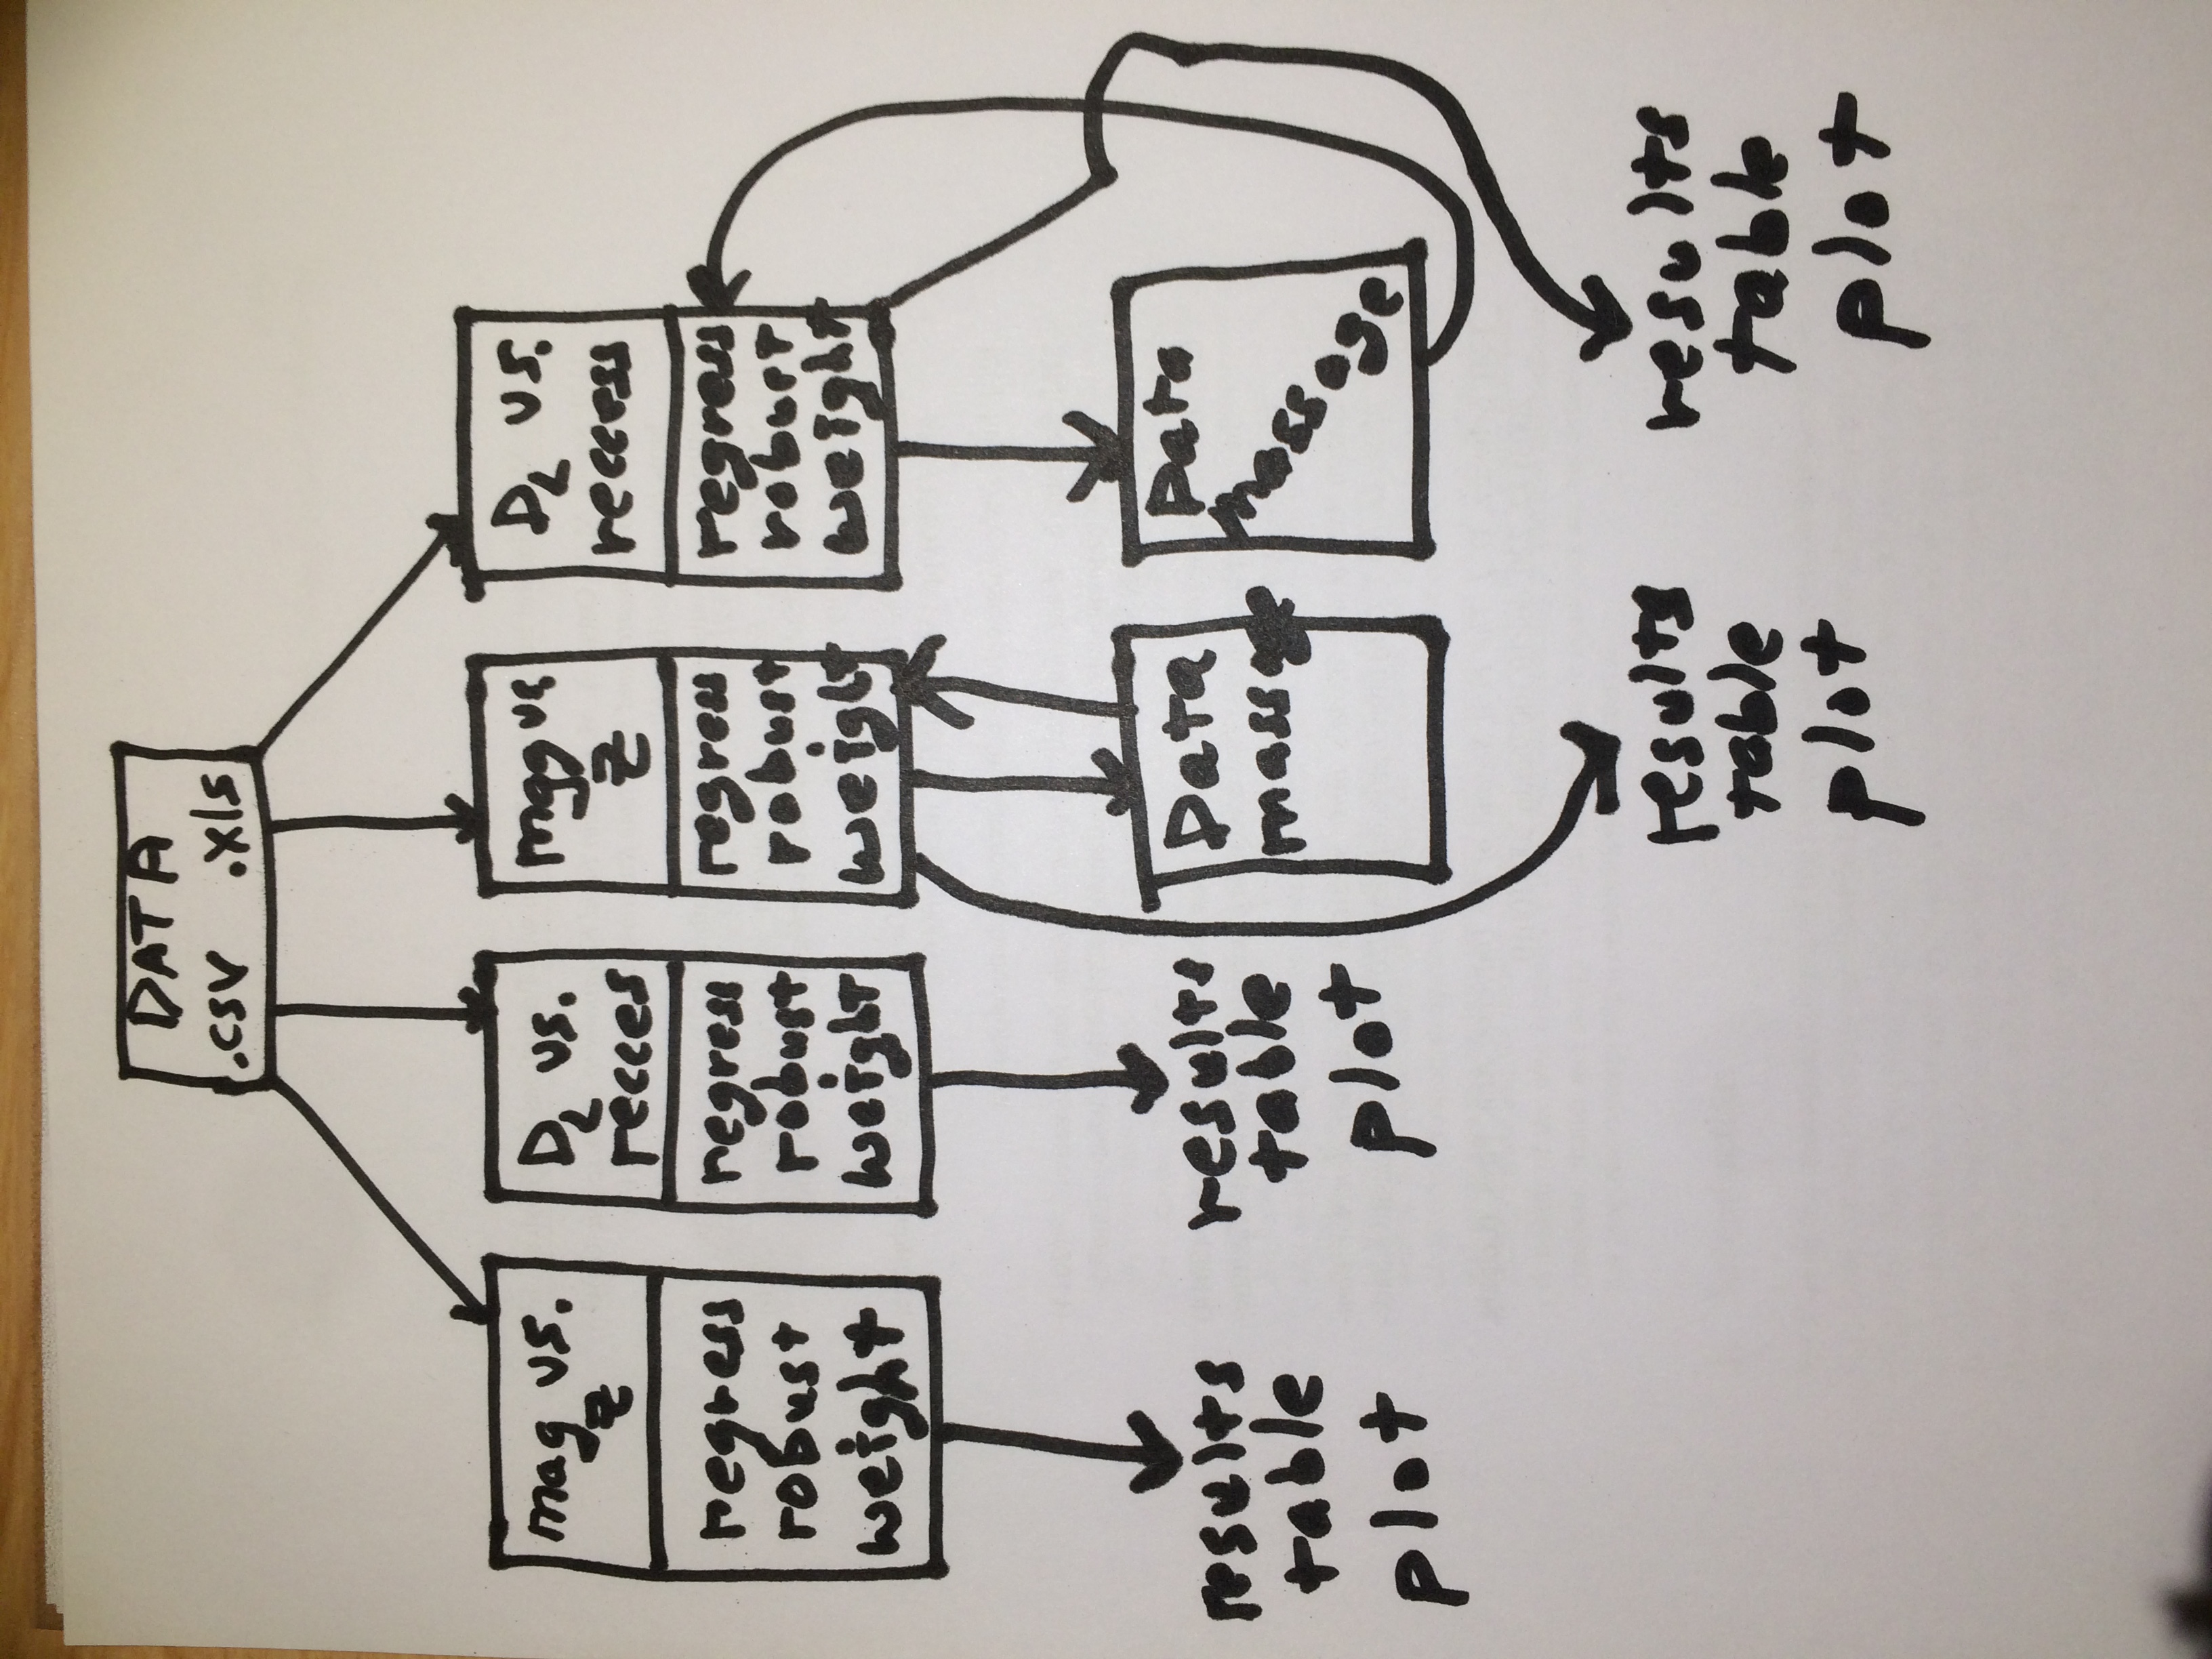 DATA
.csv .xls
mag vs.
z
regress
robust
weight
results
table
plot
D_L vs.
recces
regress
robust
weight
results
table
plot
mgg vs
z
regress
robust
weight
Data
massage
results
table
plot
D_L vs.
reccess
regress
robust
weight
Data
massage
results
table
plot